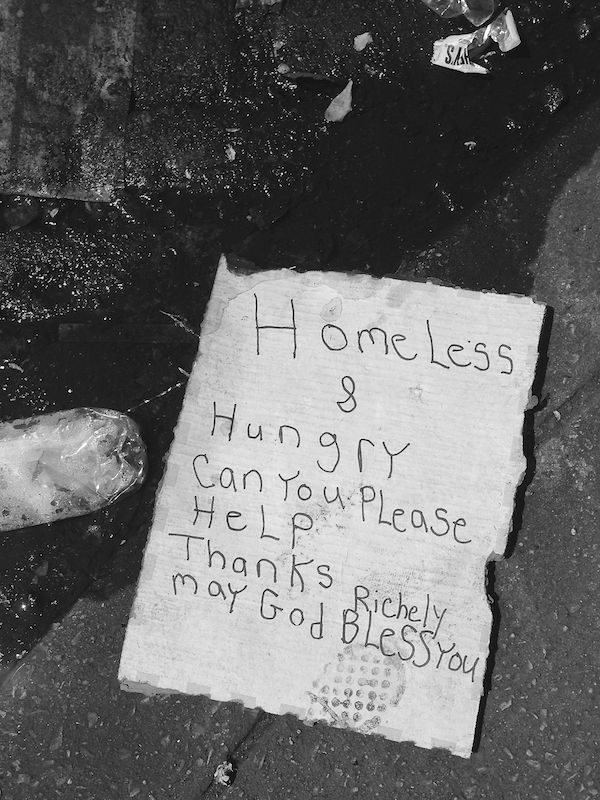 HomeLess
&
HungrY
Can You PLease
HeLp
Thanks
may God Richely BLeSS You